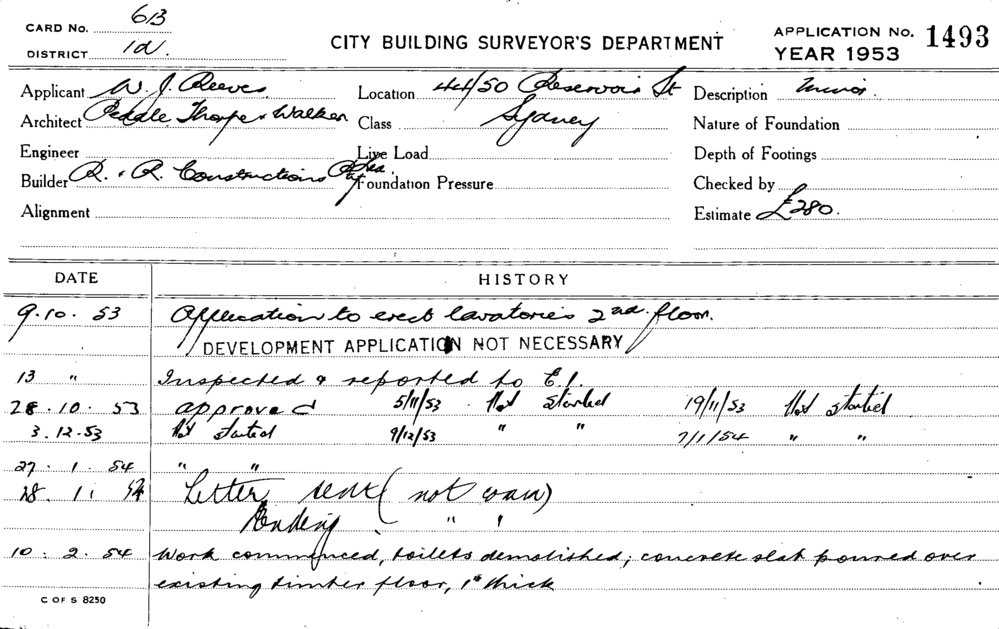 CARD No. 6B
DISTRICT 1a.
CITY BUILDING SURVEYOR'S DEPARTMENT
APPLICATION No. 1493
YEAR 1953
Applicant W. J. Reeves
Location 44/50 Reservoir St
Description Minor.
Architect Peddle Thorpe & Walker
Class Sydney
Nature of Foundation
Engineer
Live Load
Depth of Footings
Builder R. & R. Constructions Pty
Foundation Pressure
Checked by
Alignment
Estimate £280.
DATE HISTORY
9.10.53 Application to erect lavatories 2nd. floor.
DEVELOPMENT APPLICATION NOT NECESSARY
13 " Inspected & reported to E.I.
28.10.53 approved 5/11/53 Not Started 19/11/53 Not started
3.12.53 Not started 9/12/53 " " 7/1/54 " "
27.1.54 " "
28.1. 54 Letter sent (not commenced)
Pending " "
10.2.54 Work commenced, toilets demolished; concrete slab poured over
existing timber floor, 1" thick
C OF S 8250